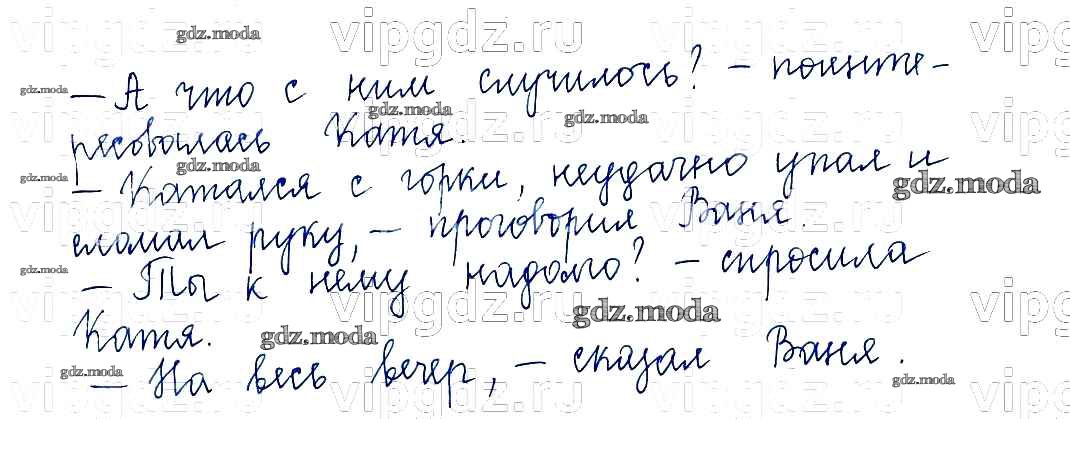 gdz.moda vipgdz.ru vipgdz.ru vipg
— А что с ним случилось? – поинте-
gdz.moda gdz.moda gdz.moda
ресовалась Катя.
gdz.moda gdz.moda
— Катался с горки, неудачно упал и
gdz.moda
сломал руку, – проговорил Ваня.
gdz.moda
— Ты к нему надолго? – спросила
gdz.moda
Катя.
gdz.moda
— На весь вечер, – сказал Ваня.
gdz.moda gdz.moda
vipgdz.ru vipgdz.ru vipg